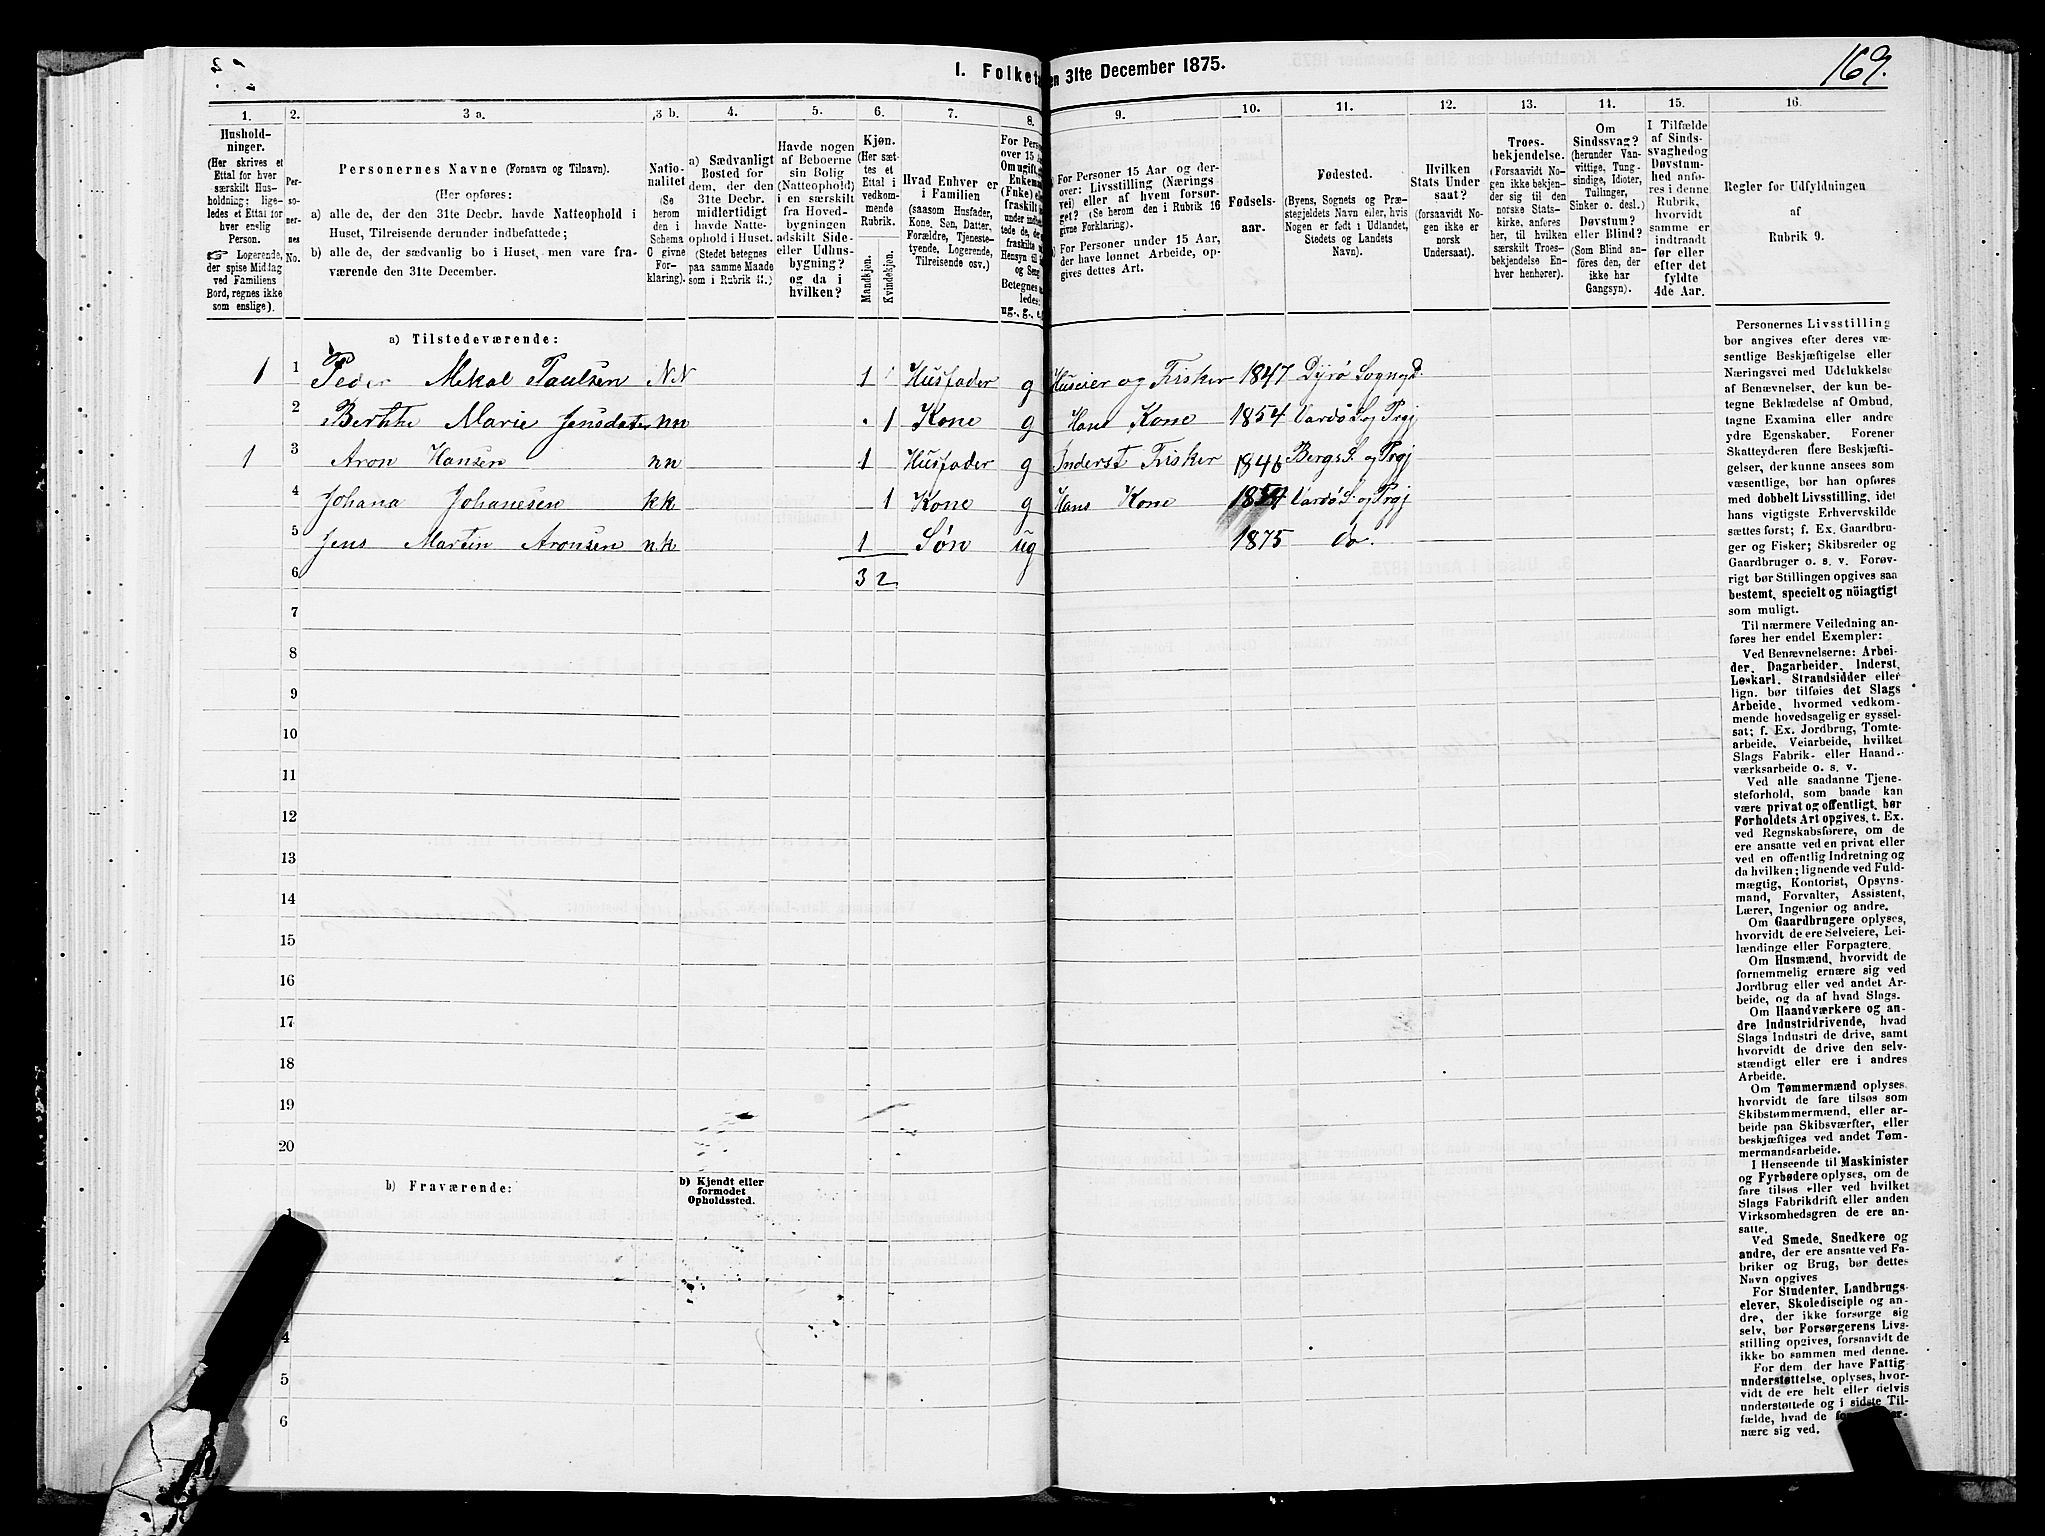 2
I. Folket
en 31te December 1875.
169.
1.
Hushold-
ninger.
(Her skrives et
Ettal for hver
særskilt Hus-
holdning; lige-
ledes et Ettal for
hver enslig
Person.
☞ Logerende,
der spise Middag
ved Familiens
Bord, regnes ikke
som enslige).
2.
Per-
so-
ner-
nes
No.
3 a.
Personernes Navne (Fornavn og Tilnavn).
(Her opføres:
a) alle de, der den 31te Decbr. havde Natteophold i
Huset, Tilreisende derunder indbefattede;
b) alle de, der sædvanlig bo i Huset, men vare fra-
værende den 31te December.
3 b.
Natio-
nalitet
(Se
herom
den i
Schema
C givne
For-
klaring).
4.
a) Sædvanligt
Bosted for
dem, der den
31te Decbr.
midlertidigt
havde Natte-
ophold i Huset.
(Stedet betegnes
paa samme Maade
som i Rubrik 11.)
5.
Havde nogen
af Beboerne
sin Bolig
(Natteophold)
i en særskilt
fra Hoved-
bygningen
adskilt Side-
eller Udhus-
bygning?
og da i
hvilken?
6.
Kjøn.
(Her sæt-
tes et
Ettal i
vedkom-
mende
Rubrik.
Mandkjøn.
Kvindekjøn.
7.
Hvad Enhver er
i Familien
(saasom Husfader,
Kone, Søn, Datter,
Forældre, Tjeneste-
tyende, Logerende,
Tilreisende osv.)
8.
For Perso
over 15 A
Om ugift, g
Enkema
(Fnke) ell
fraskilt
under indb
tede de, d
fraskilte
Hensyn til
og Seng
Betegnes
ledes:
ug., g., e
9.
a) For Personer 15 Aar og der-
over: Livsstilling (Nærings
vei) eller af hvem forsør-
get? (Se herom den i Rubrik 16
givne Forklaring).
b) For Personer under 15 Aar,
der have lønnet Arbeide, op-
gives dettes Art.
10.
Fødsels-
aar.
11.
Fødested.
(Byens, Sognets og Præ-
stegjeldets Navn eller, hvis
Nogen er født i Udlandet,
Stedets og Landets
Navn).
12.
Hvilken
Stats Under
saat?
(forsaavidt No-
gen ikke er
norsk
Undersaat).
13.
Troes-
bekjendelse.
(Forsaavidt No-
gen ikke bekjen-
der sig til den
norske Stats-
kirke, anføres
her, til hvilken
særskilt Troes-
bekjendelse En-
hver henhører).
14.
Om
Sindssvag?
(herunder Van-
vittige, Tung-
sindige, Idioter,
Tullinger,
Sinker o. desl.)
Døvstum?
eller Blind?
(Som Blind an-
føres den, der
ikke har
Gangsyn).
15.
I Tilfælde
af Sinds-
svaghed og
Døvstum-
hed anfø-
res i denne
Rubrik,
hvorvidt
samme er
indtraadt
før eller
efter det
fyldte
4de Aar.
16.
Regler for Udfyldningen
af
Rubrik 9.
a) Tilstedeværende:
1 1 Peder Mekal Paulsen NN 1 Husfader g Huseier og Fisker 1847 Dyrö Sogn
2 Berthe Marie Jensdater nn 1 Kone g Hans Kone 1854 Vardö S og Prgj
1 3 Aron Hansen nn 1 Husfader g Inderst Fisker 1846 Bergs S. og Prgj
4 Johana Johanesen kk 1 Kone g Hans Kone 1854 Vardö S. og Prgj
5 Jens Martin Aronsen nk 1 Søn ug 1875 do.
6 3 2
7
8
9
10
11
12
13
14
15
16
17
18
19
20
b) Fraværende:
b) Kjendt eller
formodet
Opholdssted.
1
4
5
6
Personernes Livsstilling
bør angives efter deres væ-
sentlige Beskjæftigelse eller
Næringsvei med Udelukkelse
af Benævnelser, der kun be-
tegne Beklædelse af Ombud,
tagne Examina eller andre
ydre Egenskaber. Forener
Skatteyderen flere Beskjæfti-
gelser, der kunne ansees som
væsentlige, bør han opføres
med dobbelt Livsstilling, idet
hans vigtigste Erhvervskilde
sættes først; f. Ex. Gaardbru-
ger og Fisker; Skibsreder og
Gaardbruger o. s. v. Forøv-
rigt bør Stillingen opgives saa
bestemt, specielt og nöiagtigt
som muligt.
Til nærmere Veiledning an-
føres her endel Exempler:
Ved Benævnelserne: Arbei-
der, Dagarbeider, Inderst,
Løskarl, Strandsidder eller
lign. bør tilføies det Slags
Arbeide, hvormed vedkom-
mende hovedsagelig er syssel-
sat; f. Ex. Jordbrug, Tomte-
arbeide, Veiarbeide, hvilket
Slags Fabrik- eller Haand-
værksarbeide o. s. v.
Ved alle saadanne Tjene-
steforhold, som baade kan
være privat og offentligt, bør
Forholdets Art opgives, t. Ex.
ved Regnskabsførere, om de
ere ansatte ved en privat eller
ved en offentlig Indretning og
da hvilken; lignende ved Fuld-
mægtig, Kontorist, Opsyns-
mand, Forvalter, Assistent,
Lærer, Ingeniør og andre.
Om Gaardbrugere oplyses,
hvorvidt de ere Selveiere, Lei-
lændinge eller Forpagtere.
Om Husmænd, hvorvidt de
fornemmelig ernære sig ved
Jordbrug eller ved andet Ar-
beide, og da af hvad Slags.
Om Haandværkere og an-
dre Industridrivende, hvad
Slags Industri de drive, samt
hvorvidt de drive den selv-
stændigt eller ere i andres
Arbeide.
Om Tømmermænd oplyses,
hvorvidt de fare tilsøs som
Skibstømmermænd, eller ar-
beide paa Skibsværfter, eller
beskjæftiges ved andet Tøm-
mermandsarbeide.
I Henseende til Maskinister
og Fyrbødere oplyses, om de
fare tilsøs eller ved hvilket
Slags Fabrikdrift eller anden
Virksomhedsgren de ere an-
satte.
Ved Smede, Snedkere og
andre, der ere ansatte ved Fa-
briker og Brug, bør dettes
Navn opgives
For Studenter, Landbrugs-
elever, Skoledisciple og an-
dre, der ikke forsørge sig
selv, bør Forsørgerens Livs-
stilling opgives, forsaavidt de
ikke bo sammen med denne.
For dem, der have Fattig-
understøttelse, oplyses, hvor-
vidt de ere helt eller delvis
understøttede og i sidste Til-
fælde, hvad de
nære sig ved.